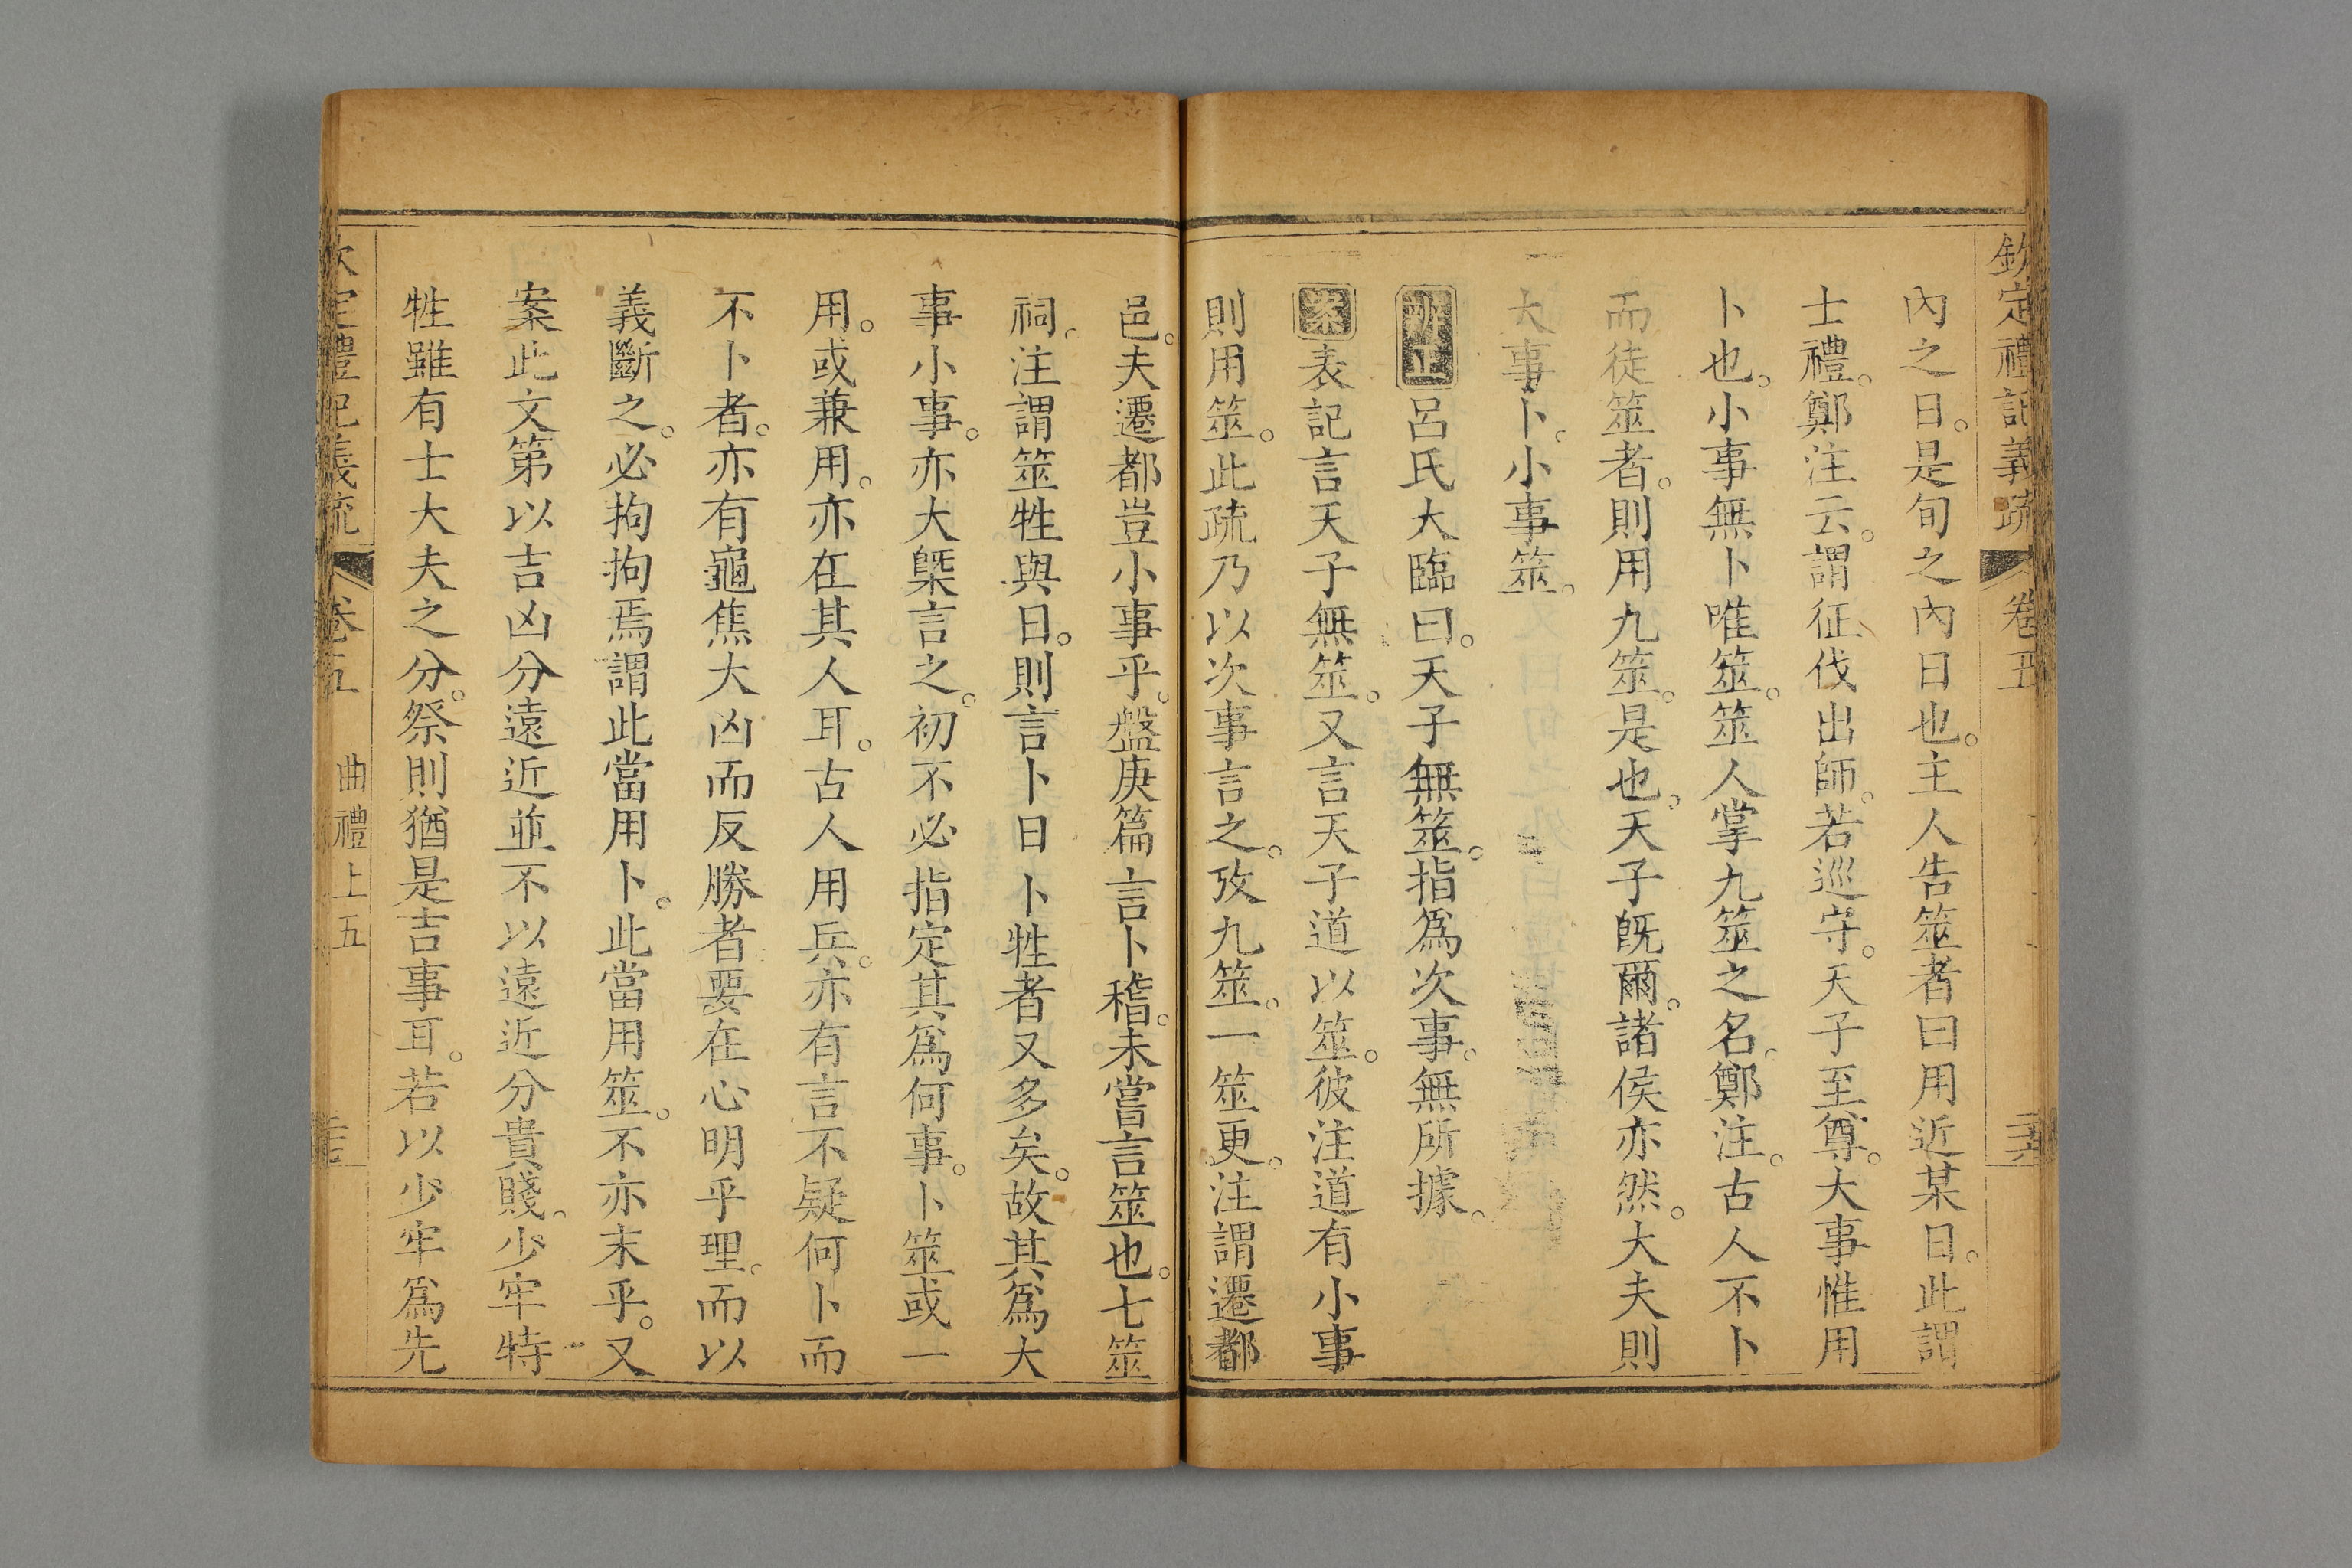 欽定禮記義疏 卷五
內之日。是旬之內日也。主人告筮者曰用近某日。此謂
士禮。鄭注云。謂征伐出師。若巡守。天子至尊。大事惟用
卜也。小事無卜唯筮。筮人掌九筮之名。鄭注。古人不卜
而徒筮者。則用九筮。是也。天子旣爾。諸侯亦然。大夫則
大事卜。小事筮。
辨正呂氏大臨曰。天子無筮。指爲次事。無所據。
案表記言天子無筮。又言天子道以筮。彼注道有小事
則用筮。此疏乃以次事言之。攷九筮。一筮更。注謂遷都
邑。夫遷都豈小事乎。盤庚篇言卜稽。未嘗言筮也。七筮
祠。注謂筮牲與日。則言卜日卜牲者又多矣。故其爲大
事小事。亦大槩言之。初不必指定其爲何事。卜筮或一
用。或兼用。亦在其人耳。古人用兵。亦有言不疑何卜而
不卜者。亦有龜焦大凶而反勝者要在心明乎理。而以
義斷之。必拘拘焉謂此當用卜。此當用筮。不亦末乎。又
案此文第以吉凶分遠近並不以遠近分貴賤。少牢特
牲雖有士大夫之分。祭則猶是吉事耳。若以少牢爲先
欽定禮記義疏 卷五 曲禮上五